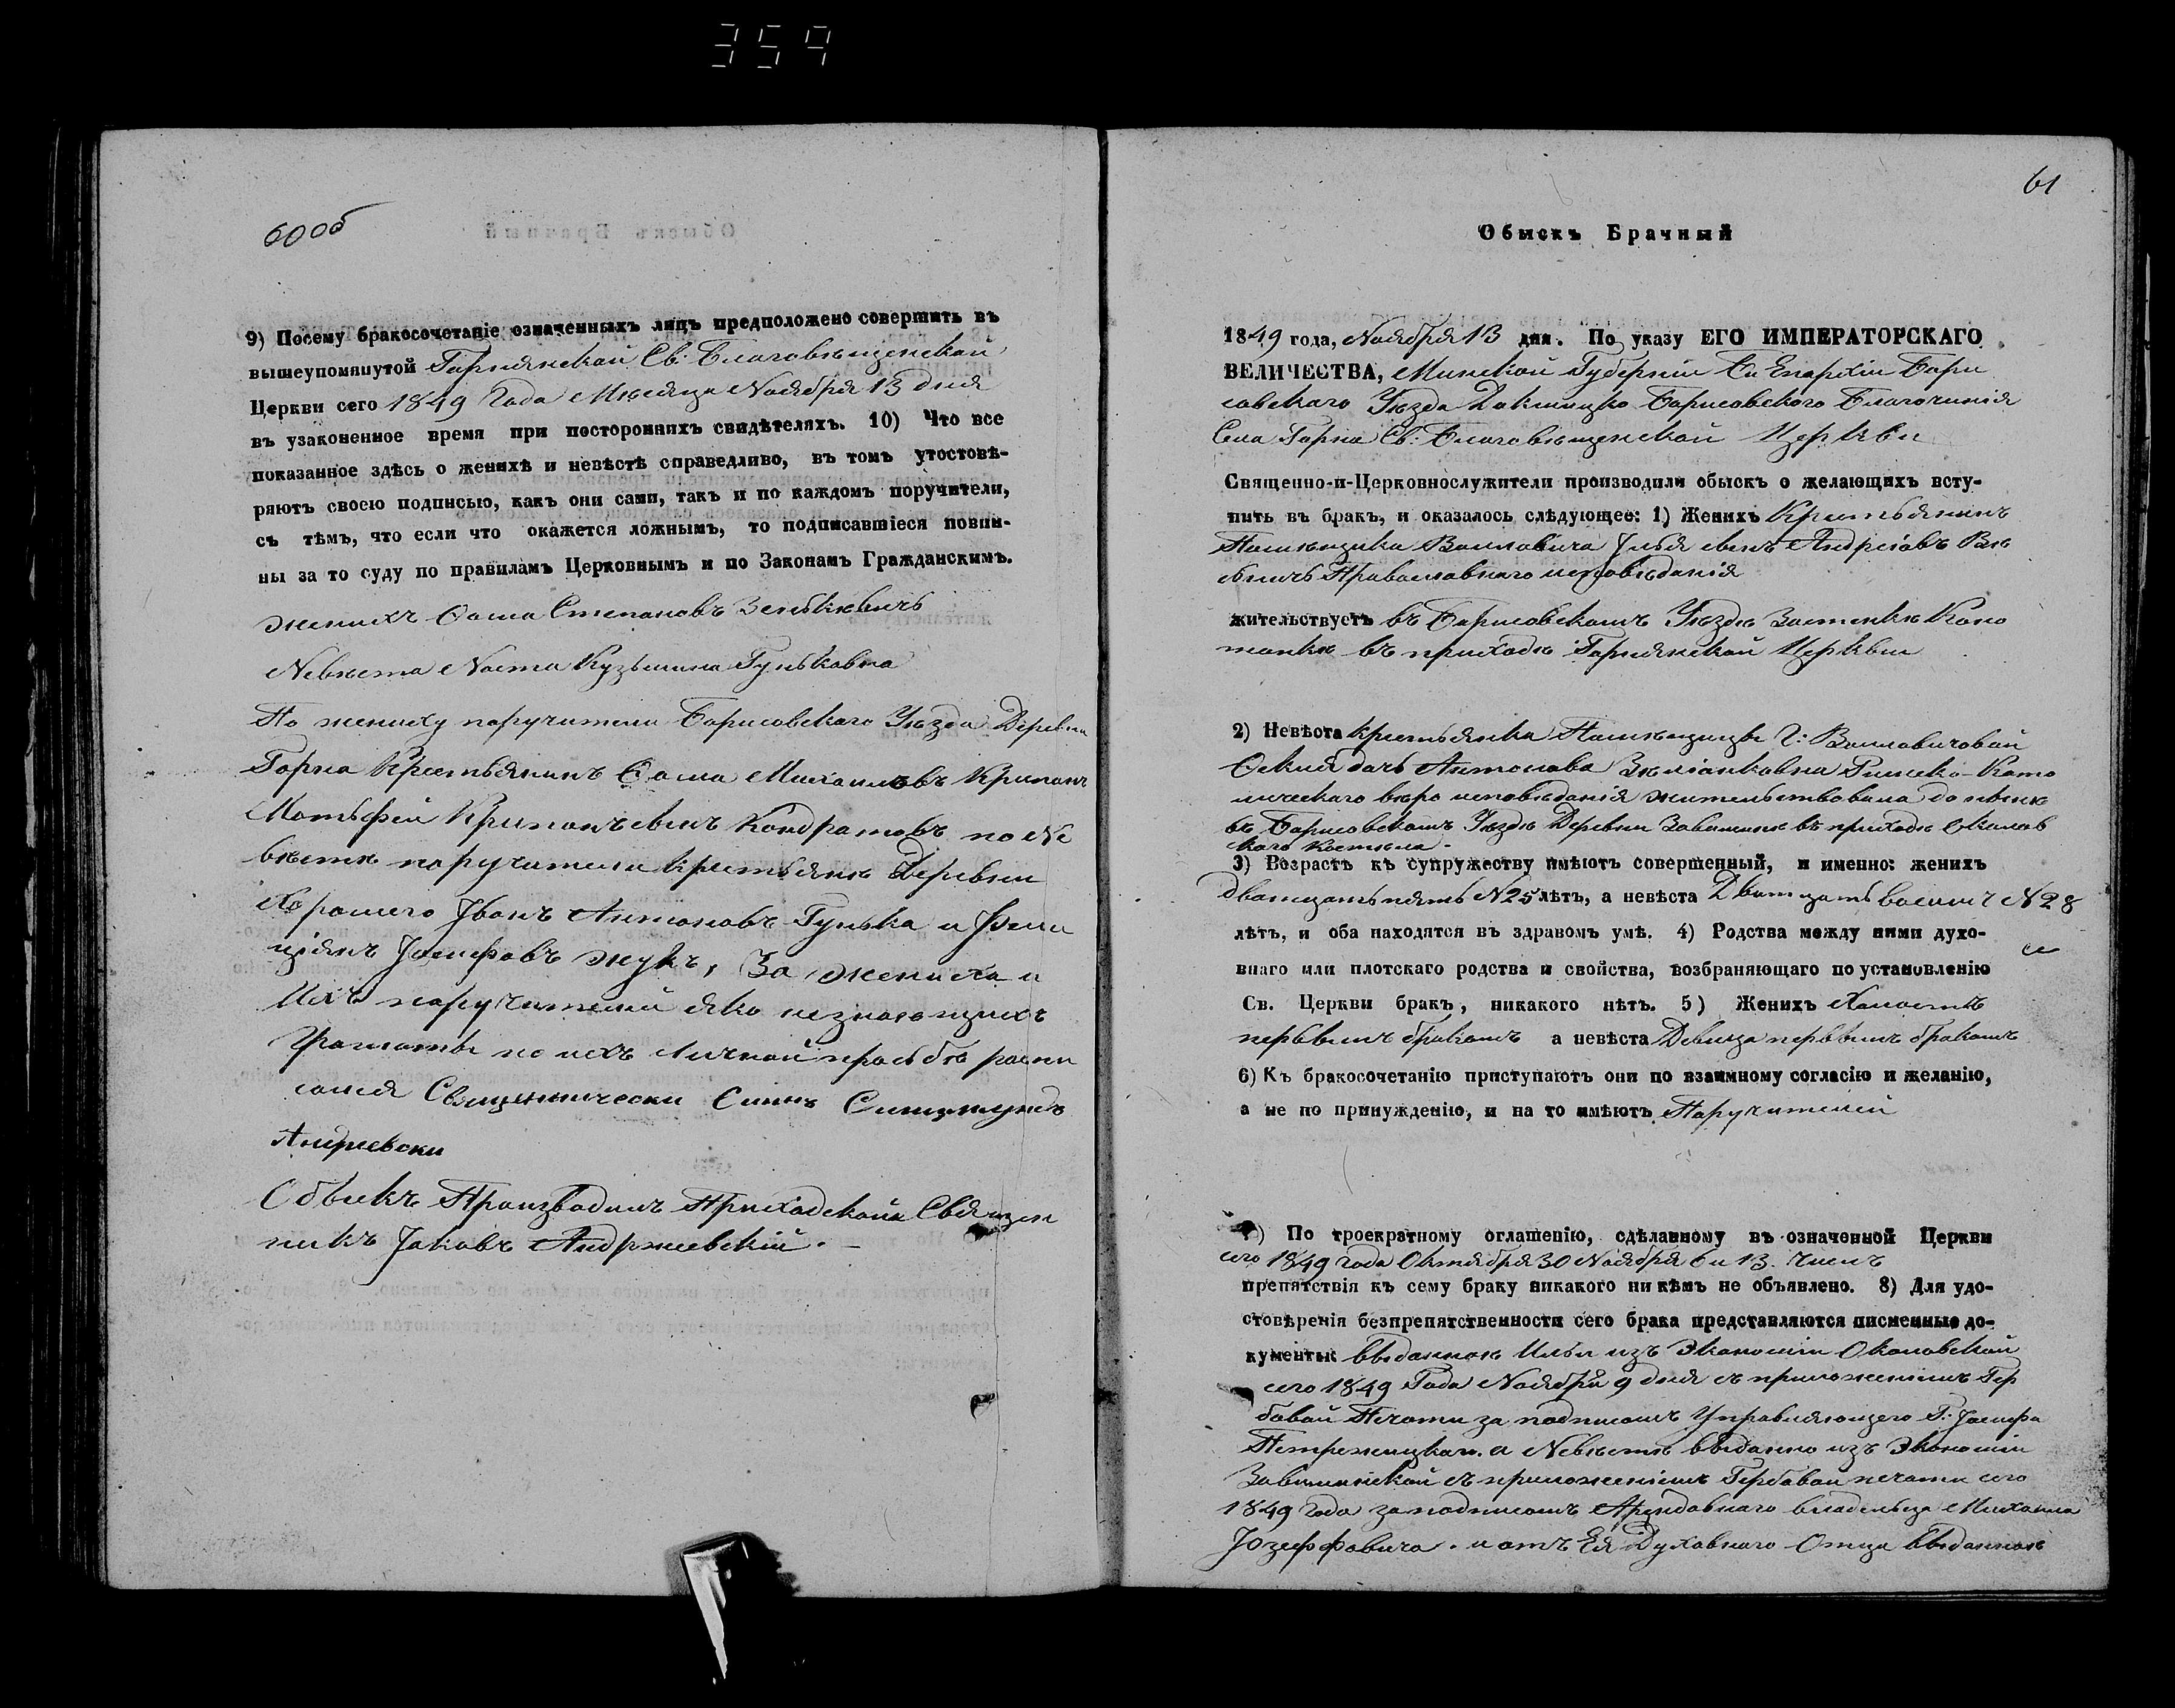 359
60об
9) Посему бракосочетаніе означенныхъ лицъ предположено совершить въ
вышеупомянутой Горнянской Св: Благовѣщенской
Церкви сего 1849 Года Мѣсяца Ноября 13 дня
въ узаконенное время при постороннихъ свидѣтеляхъ. 10) Что все
показанное здѣсь о женихѣ и невѣстѣ справедливо, въ томъ утостовѣ-
ряютъ своею подписью, какъ они сами, такъ и по каждомъ поручители,
съ тѣмъ, что если что окажется ложнымъ, то подписавшіеся повин-
ны за то суду по правиламъ Церковнымъ и по Законамъ Гражданскимъ.
женихъ Ѳома Степановъ
Невѣста Наста Кузьмина Гунькавна
По жениху поручители Борисовскаго Уѣзда Деревни
Горна Крестьянинъ Ѳома Михаиловъ
Матьфей Кондратовъ по Не
вѣстѣ поручители крестьяне Деревни
Хорошего Іванъ Антоновъ Гунька и Фели
ціянъ Іосифовъ Жукъ, За жениха и
ихъ поручителей яко незнающихъ
Грамоты по ихъ личной прозьбѣ распи
сался Священнически Синъ
Андржевски
Обыскъ Производилъ Приходской Священ
никъ Іаковъ Андржеевскій. —
61
Обыскъ Брачный
1849 года, Ноября 13 дня. По указу ЕГО ИМПЕРАТОРСКАГО
ВЕЛИЧЕСТВА, Минской Губерніи Епархіи Бори
совскаго Уѣзда Докшицко Борисовского Благочинія
Села Горна Св: Благовѣщенской Церкви
Священно-и-Церковнослужители производили обыскъ о желающихъ всту-
пить въ бракъ, и оказалось слѣдующее: 1) Женихъ Крестьянинъ
Помѣщика Воловича Ілья Андреіовъ
Православнаго исповѣданія
жительствуетъ въ Борисовскомъ Уѣздѣ Застенкѣ
въ приходѣ Горнянской Церкви
2) Невѣста крестьянка Помѣщицы Г: Воловичовой
дочь Антонова Римско-Като
лического вѣро исповѣданія жительствовала до нынѣ
въ Борисовскомъ Уѣздѣ Деревни въ приходѣ
каго костела.
3) Возрастъ къ супружеству имѣютъ совершенный, и именно: женихъ
Дватцать пять N 25 лѣтъ, а невѣста Дватцать восимъ N 28
лѣтъ, и оба находятся въ здравомъ умѣ. 4) Родства между ними духо-
внаго или плотскаго родства и свойства, возбраняющаго по установленію
Св. Церкви бракъ, никакого нѣтъ. 5) Женихъ Холостъ
первымъ бракомъ а невѣста Дѣвица первымъ бракомъ
6) Къ бракосочетанію приступаютъ они по взаимному согласію и желанію,
а не по принужденію, и на то имѣютъ Поручителей
7) По троекратному оглашенію, сдѣланному въ означенной Церкви
сего 1849 года Октября 30 Ноября 6 и 13. числъ
препятствія къ сему браку никакого ни кѣмъ не объявлено. 8) Для удо-
стовѣренія безпрепятственности сего брака представляются писменные до-
кументы: выданное Ильи изъ Экономіи Околовской
сего 1849 Года Ноября 9 дня съ приложеніимъ Гер
бовой Печати за подписомъ Управляющего Г: Іосифа
а Невѣстѣ выданно изъ Экономіи
съ приложеніимъ Гербовой печати сего
1849 года за подписомъ Арендовнаго владельца Михаила
Іозефовича. и отъ Ея Духовнаго Отца выданное